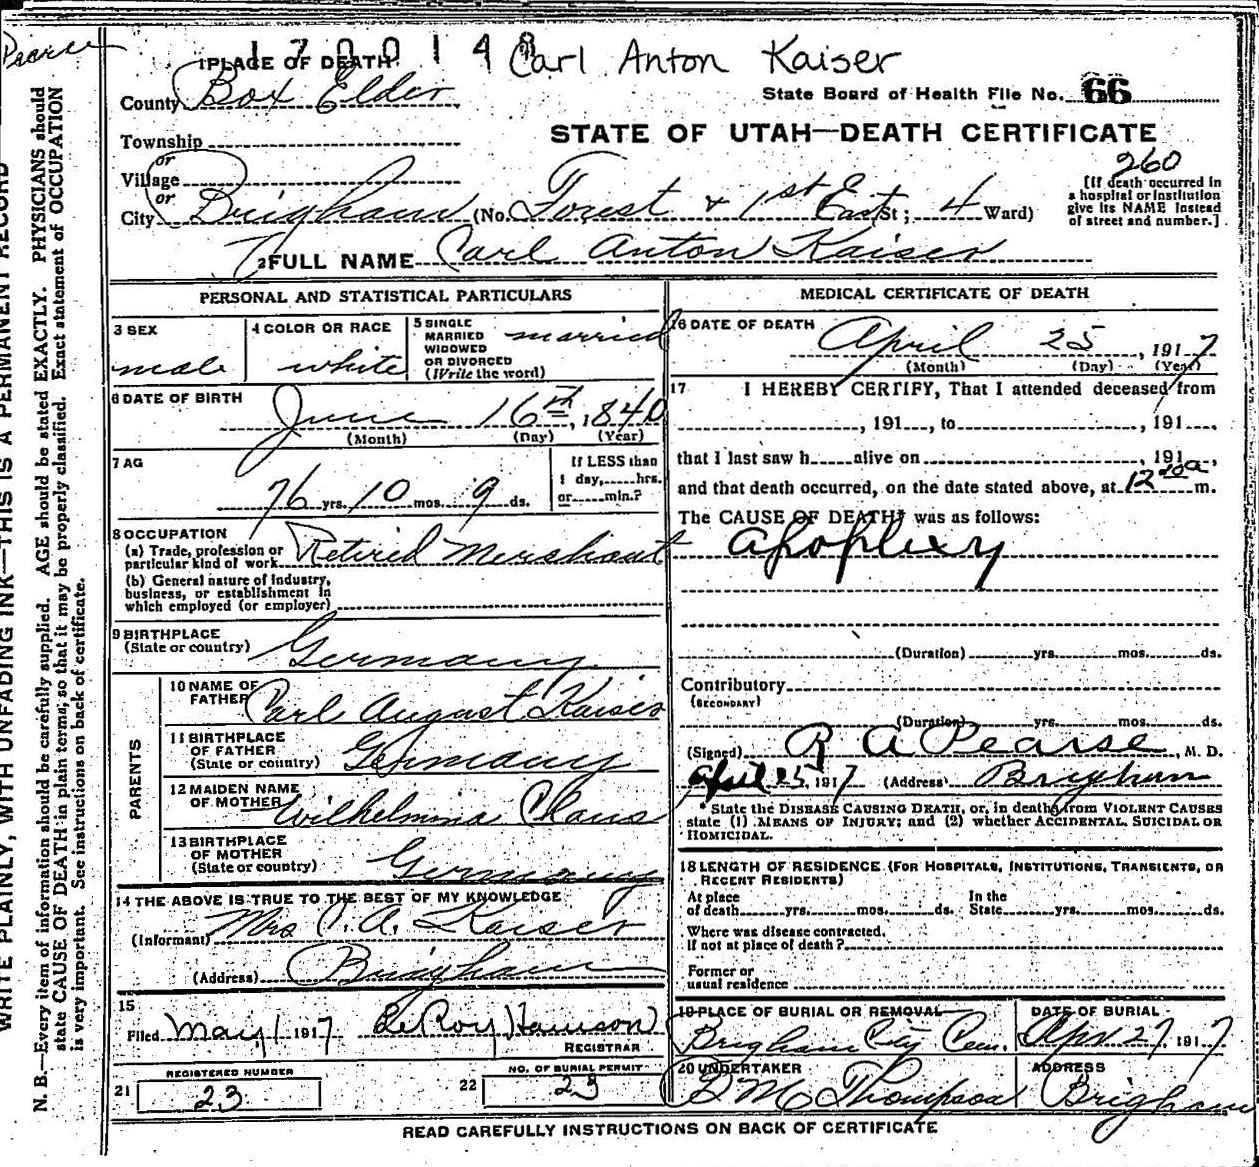 Pearse
1700148 Carl Anton Kaiser
1 PLACE OF DEATH
County Box Elder
State Board of Health File No. 66
Township
STATE OF UTAH—DEATH CERTIFICATE
or
Village
260
or
City Brigham (No. Forest & 1st East St; 4 Ward)
[If death occurred in
a hospital or institution
give its NAME instead
of street and number.]
2 FULL NAME Carl Anton Kaiser
PERSONAL AND STATISTICAL PARTICULARS
3 SEX
male
4 COLOR OR RACE
white
5 SINGLE
MARRIED
WIDOWED
OR DIVORCED
(Write the word)
married
6 DATE OF BIRTH
June 16th, 1840
(Month) (Day) (Year)
7 AG
76 yrs. 10 mos. 9 ds.
If LESS than
1 day,......hrs.
or......min.?
8 OCCUPATION
(a) Trade, profession or
particular kind of work Retired Merchant
(b) General nature of industry,
business, or establishment in
which employed (or employer)
9 BIRTHPLACE
(State or country) Germany
PARENTS
10 NAME OF
FATHER Carl August Kaiser
11 BIRTHPLACE
OF FATHER
(State or country) Germany
12 MAIDEN NAME
OF MOTHER Wilhelmina Claus
13 BIRTHPLACE
OF MOTHER
(State or country) Germany
14 THE ABOVE IS TRUE TO THE BEST OF MY KNOWLEDGE
(Informant) Mrs C. A. Kaiser
(Address) Brigham
15
Filed May 1 1917 LeRoy Harrison
REGISTRAR
REGISTERED NUMBER
21 23
NO. OF BURIAL PERMIT
22 23
MEDICAL CERTIFICATE OF DEATH
16 DATE OF DEATH
April 25, 1917
(Month) (Day) (Year)
17 I HEREBY CERTIFY, That I attended deceased from
, 191 , to , 191 ,
that I last saw h alive on , 191 ,
and that death occurred, on the date stated above, at 12 m.
The CAUSE OF DEATH* was as follows:
Apoplexy
(Duration) yrs. mos. ds.
Contributory
(SECONDARY)
(Duration) yrs. mos. ds.
(Signed) R A Pearse, M. D.
April 25, 1917 (Address) Brigham
*State the DISEASE CAUSING DEATH, or, in deaths from VIOLENT CAUSES
state (1) MEANS OF INJURY; and (2) whether ACCIDENTAL, SUICIDAL OR
HOMICIDAL.
18 LENGTH OF RESIDENCE (FOR HOSPITALS, INSTITUTIONS, TRANSIENTS, OR
RECENT RESIDENTS)
At place
of death yrs. mos. ds.
In the
State yrs. mos. ds.
Where was disease contracted.
If not at place of death?
Former or
usual residence
19 PLACE OF BURIAL OR REMOVAL
Brigham City Cem.
DATE OF BURIAL
Apr 27, 1917
20 UNDERTAKER
M Thompson
ADDRESS
Brigham
READ CAREFULLY INSTRUCTIONS ON BACK OF CERTIFICATE
WRITE PLAINLY, WITH UNFADING INK—THIS IS A PERMANENT RECORD
N. B.—Every item of information should be carefully supplied. AGE should be stated EXACTLY. PHYSICIANS should
state CAUSE OF DEATH in plain terms, so that it may be properly classified. Exact statement of OCCUPATION
is very important. See instructions on back of certificate.